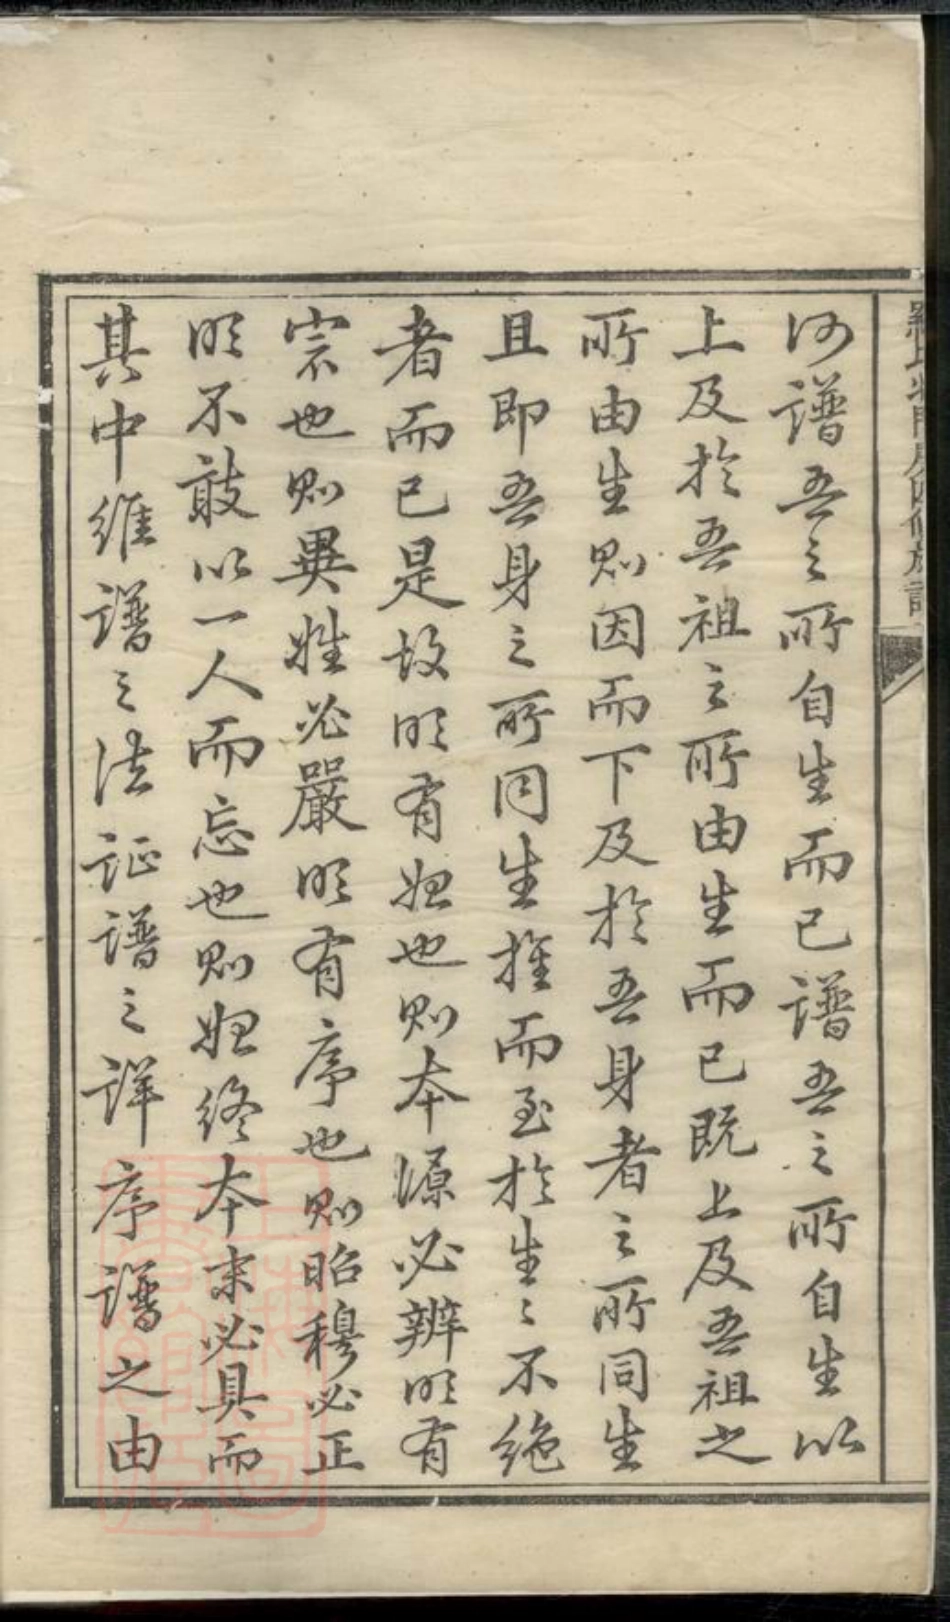 何譜吾之所自生而已譜吾之所自生以
上及於吾祖之所由生而已既上及吾祖之
所由生則因而下及於吾身者之所同生
且即吾身之所同生推而至於生生不絕
者而已是故明有始也則本源必辨明有
宗也則異姓必嚴明有序也則昭穆必正
明不敢以一人而忘也則始終本末必具而
其中維譜之法証譜之詳序譜之由